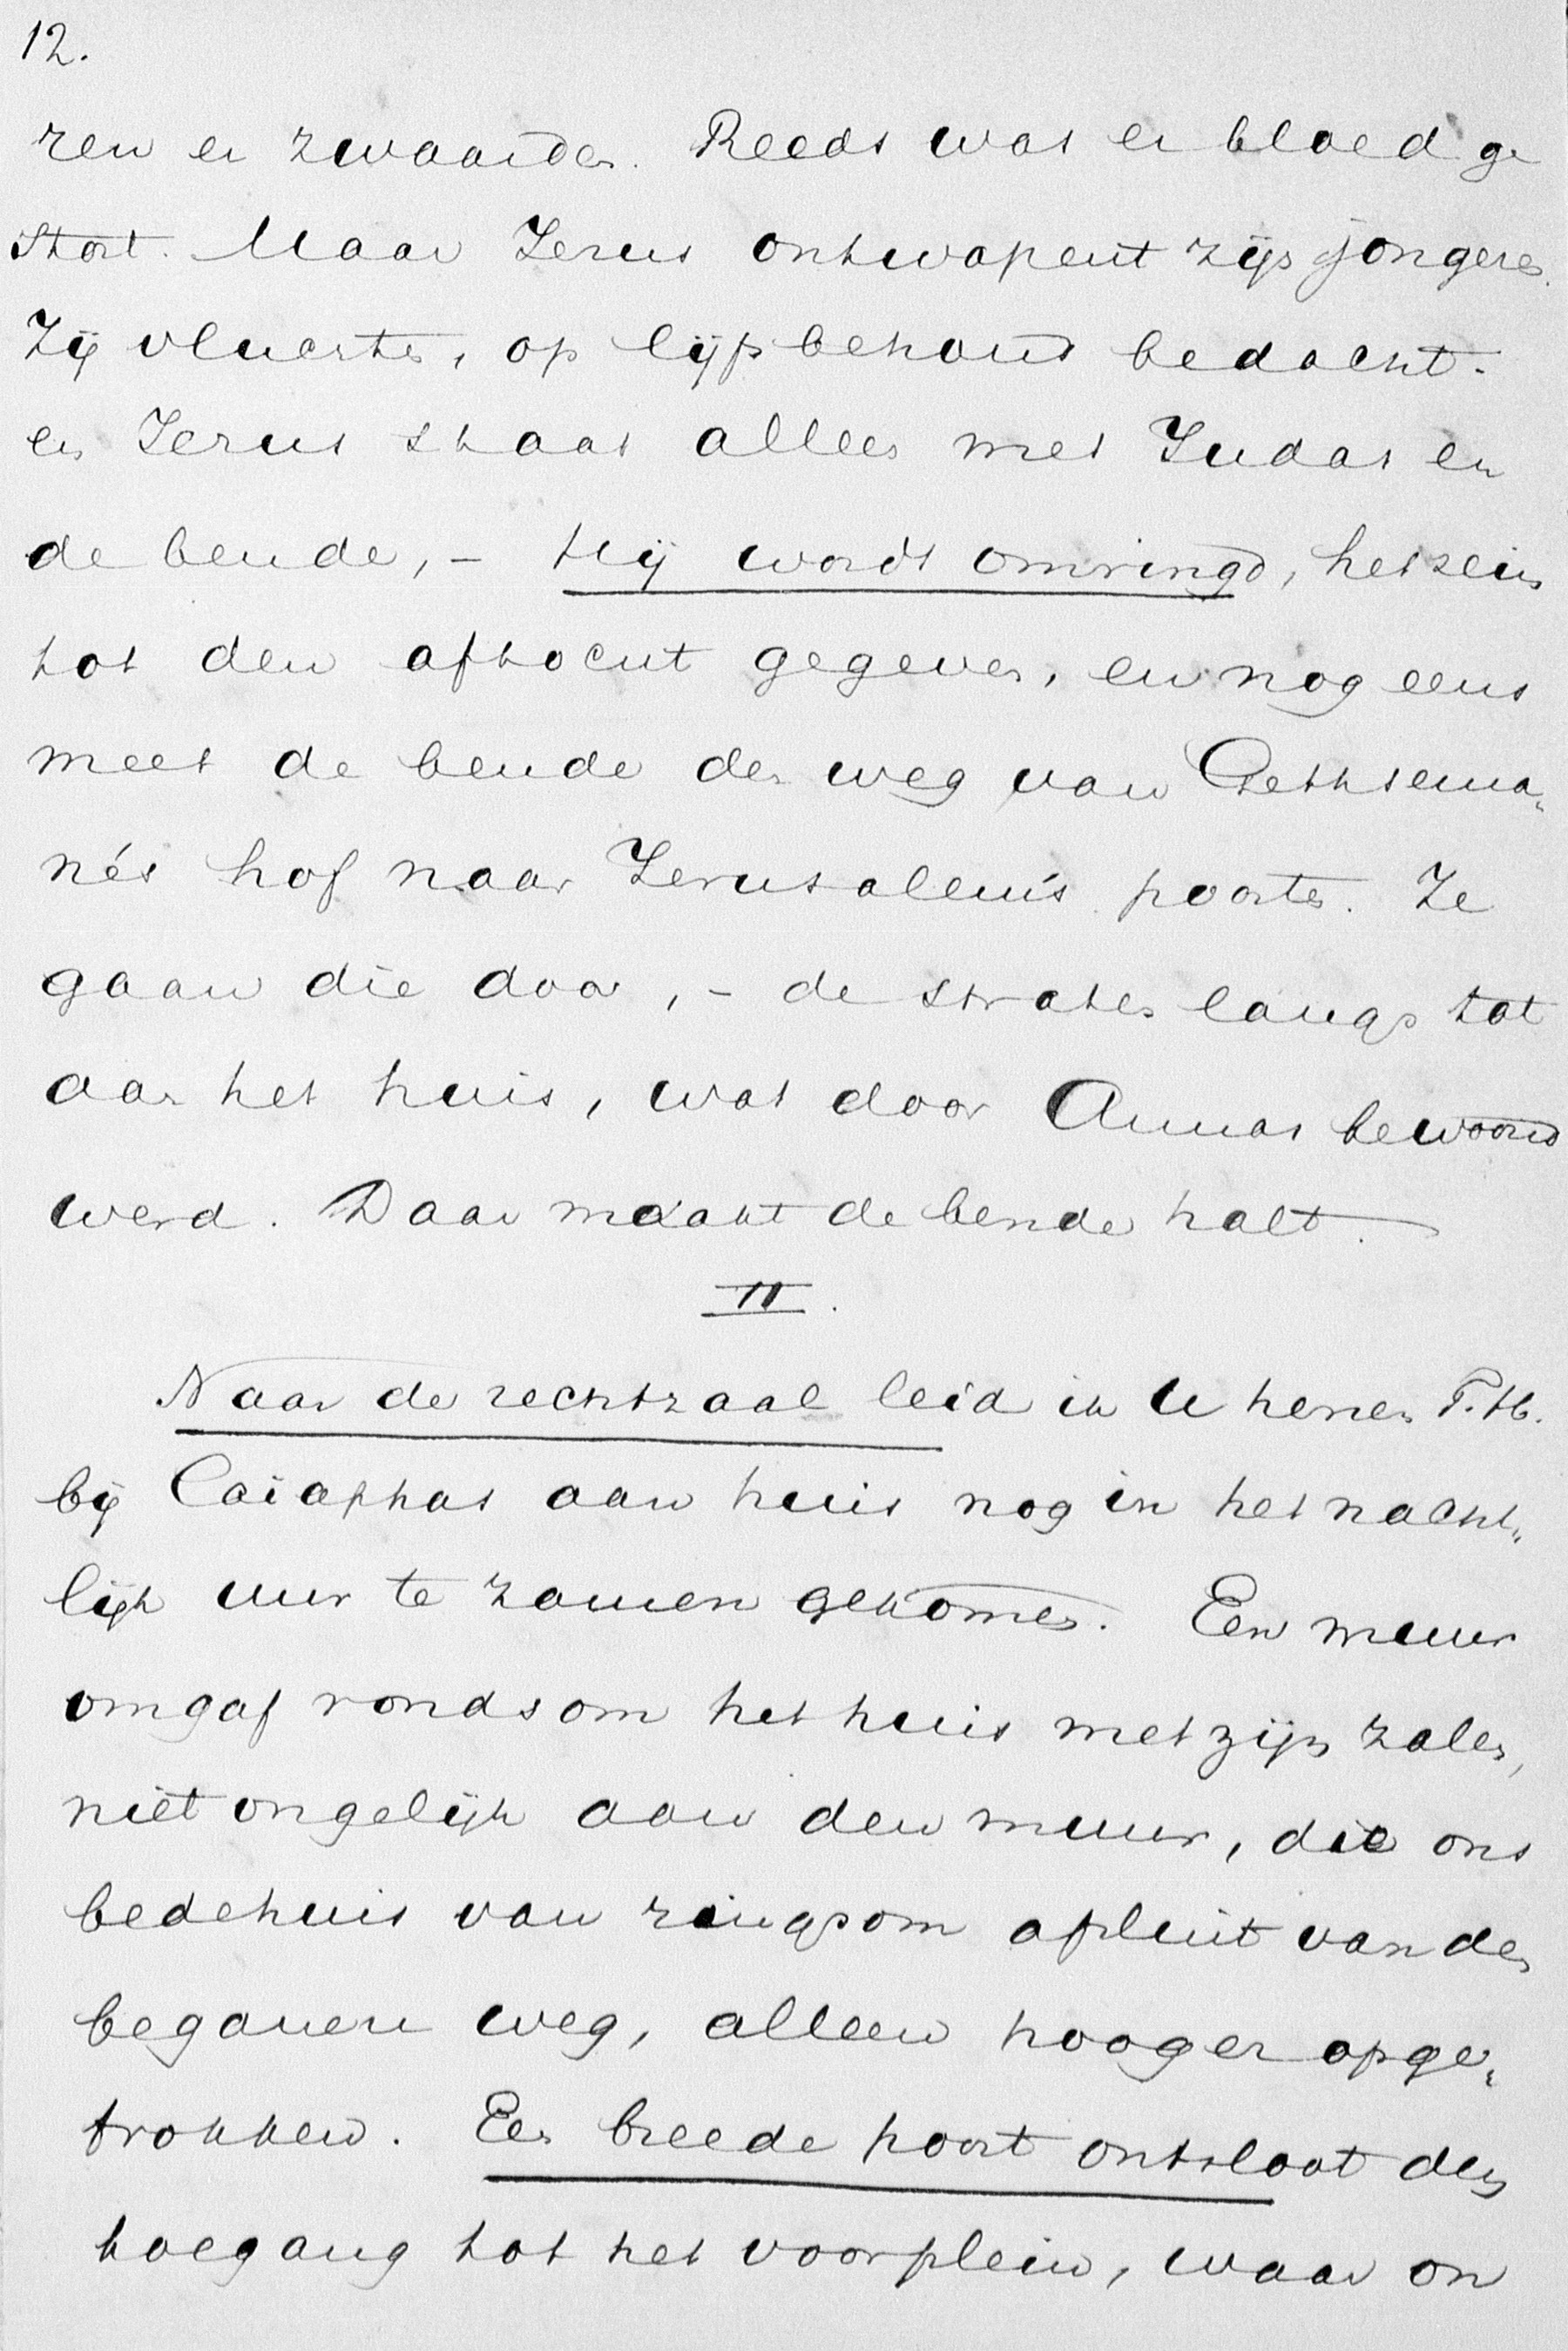 12.
ren en zwaarden. Reeds was er bloed ge
stort. Maar Jezus ontwapent zijn jongeren.
Zij vluchten, op lijfsbehoud bedacht.
en Jezus staat alleen met Judas en
de bende, – Hij wordt omringd, het sein
tot den aftocht gegeven, en nog eens
meet de bende den weg van Gethsema„
né's hof naar Jerusalem's poorten. Ze
gaan die door, – de straten langs tot
aan het huis, wat door Annas bewoond
werd. Daar maakt de bende halt.
II.
Naar de rechtzaal leid ik U henen T. H.
bij Caiaphas aan huis nog in het nacht„
lijk uur te zamen gekomen. Een muur
omgaf rondsom het huis met zijn zalen,
niet ongelijk aan den muur, die ons
bedehuis van ringsom afsluit van den
beganen weg, alleen hooger opge„
trokken. Een breede poort ontsloot den
toegang tot het voorplein, waar on